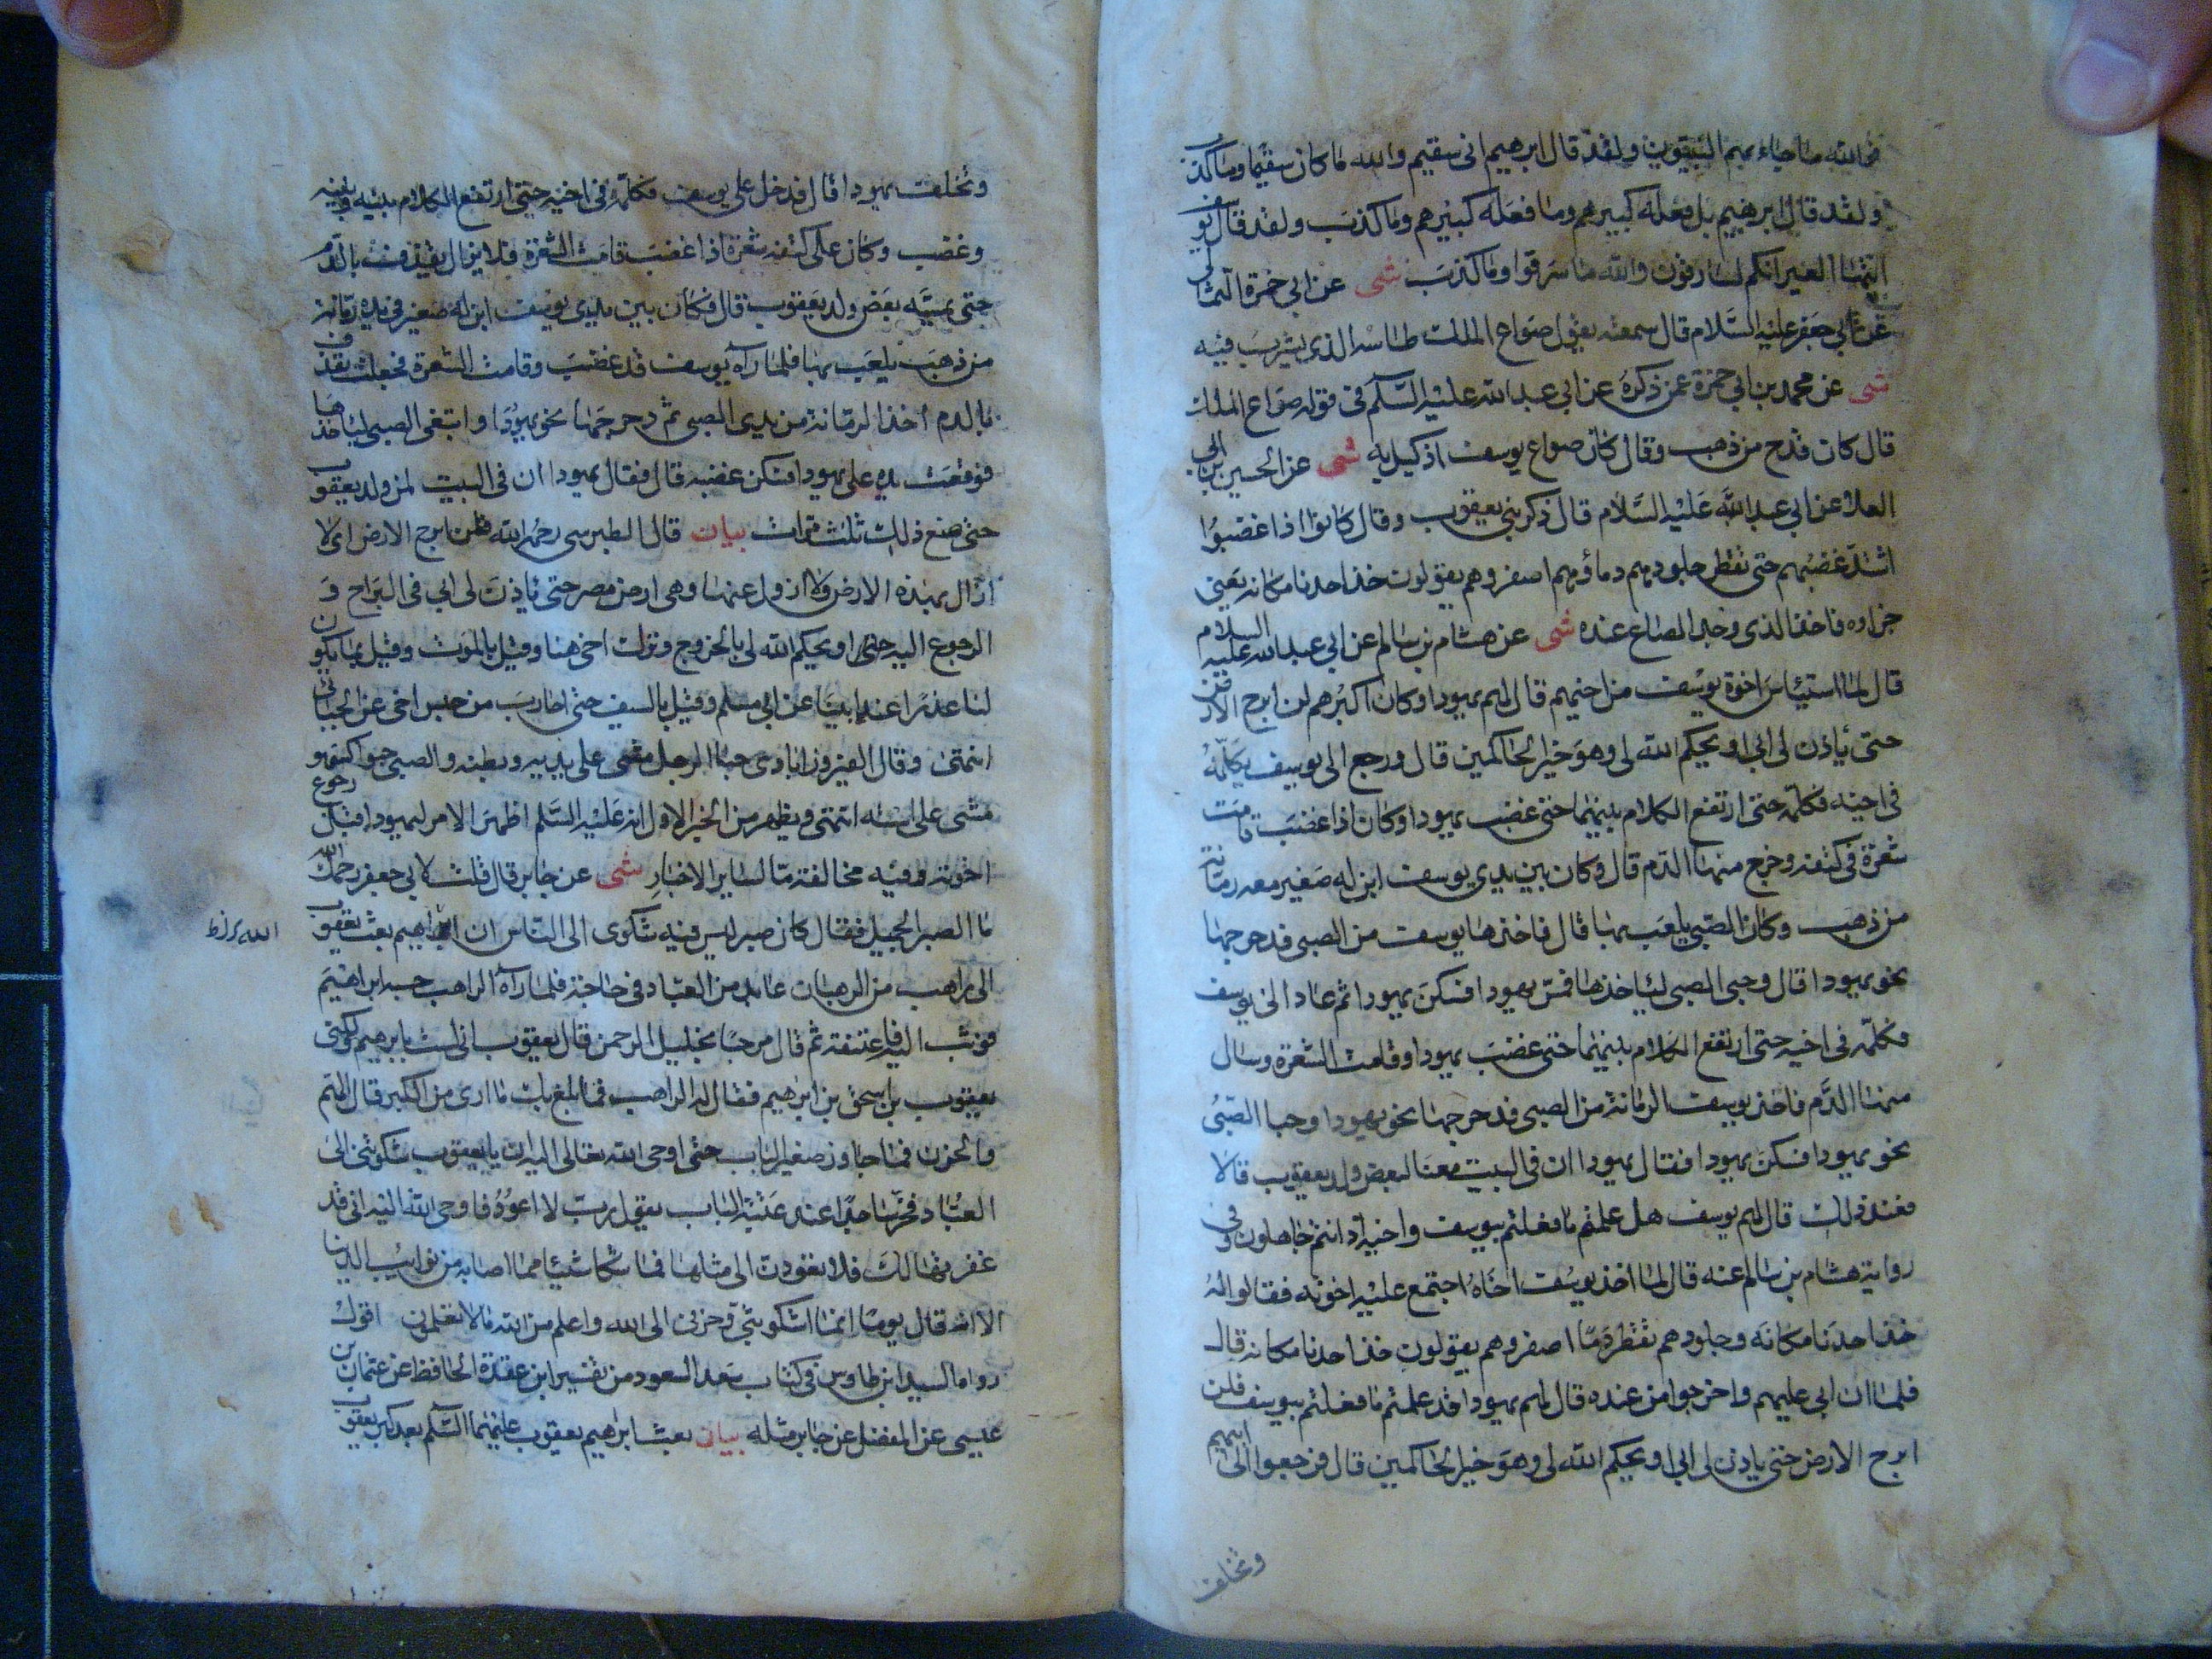 فوالله ما جاء بهم النبيون ولقد قال ابرهيم انى سقيم والله ما كان سقيما وما كذب
ولقد قال ابرهيم بل فعله كبيرهم وما فعله كبيرهم وما كذب ولقد قال يوسف
ايتها العير انكم لسارقون والله ما سرقوا وما كذب شى عن ابي حمزة الثمالى
عن ابي جعفر عليه السلام قال سمعته يقول صواع الملك طاسه الذى يشرب فيه
شى عن محمد بن ابي حمزة عمن ذكره عن ابي عبد الله عليه السلم فى قوله صواع الملك
قال كان قدح من ذهب وقال كان صواع يوسف اذ كيل به شى عن الحسين بن ابى
العلا عن ابي عبد الله عليه السلام قال ذكر بنى يعقوب وقال كانوا اذا غضبوا
اشتد غضبهم حتى تقطر جلودهم دما وهم اصفر وهم يقولون خذ احدنا مكانه يعنى
جزاوه فاخذ الذى وجد الصاع عنده شى عن هشام بن سالم عن ابي عبد الله عليه السلام
قال لما استيئس اخوة يوسف من اخيهم قال لهم يهودا وكان اكبرهم لن ابرح الارض
حتى ياذن لى ابى او يحكم الله لى وهو خير الحاكمين قال ورجع الى يوسف يكلمه
فى اخيه فكلمه حتى ارتفع الكلام بينهما حتى غضب يهودا وكان اذا غضب قامت
شعرة فى كتفه وخرج منها الدم قال وكان بين يدى يوسف ابن له صغير معه رمانة
من ذهب وكان الصبى يلعب بها قال فاخذها يوسف من الصبى فدحرجها
نحو يهودا قال وحبى الصبى لياخذها فمس يهودا فسكن يهودا ثم عاد الى يوسف
فكلمه فى اخيه حتى ارتفع الكلام بينهما حتى غضب يهودا وقامت الشعرة وسال
منها الدم فاخذ يوسف الرمانة من الصبى فدحرجها نحو يهودا وحبا الصبى
نحو يهودا فسكن يهودا فقال يهودا ان فى البيت معنا لبعض ولد يعقوب قال
فعند ذلك قال لهم يوسف هل علمتم ما فعلتم بيوسف واخيه اذ انتم جاهلون وفى
رواية هشام بن سالم عنه قال لما اخذ يوسف اخاه اجتمع عليه اخوته فقالوا له
خذ احدنا مكانه وجلودهم تقطر دما اصفر وهم يقولون خذ احدنا مكانه قال
فلما ان ابى عليهم واخرجوا من عنده قال لهم يهودا قد علمتم ما فعلتم بيوسف فلن
ابرح الارض حتى ياذن لى ابى او يحكم الله لى وهو خير الحاكمين قال فرجعوا الى ابيهم
وتخلف
وتخلف يهودا قال فدخل على يوسف فكلمه فى اخيه حتى ارتفع الكلام بينه وبينه
وغضب وكان على كتفه شعرة اذا غضب قامت الشعرة فلا يزال يقذفت بالدم
حتى يمسه بعض ولد يعقوب قال فكان بين يدى يوسف ابن له صغير فى يده رمانة
من ذهب يلعب بها فلما رآه يوسف قد غضب وقامت الشعرة فجعلت تقذف
بالدم اخذ الرمانة من يدى الصبى ثم دحرجها نحو يهودا واتبعها الصبى لياخذها
فوقعت يده على يهودا فسكن غضبه قال فقال يهودا ان فى البيت لمن ولد يعقوب
حتى صنع ذلك ثلث مرات بيان قال الطبرسى رحمه الله فلن ابرح الارض اى لا
ازال بهذه الارض ولا ازول عنها وهى ارض مصر حتى ياذن لى ابى فى البراح و
الرجوع اليه حتى او يحكم الله لى بالخروج وترك اخى هنا وقيل بالموت وقيل بما يكون
لنا عذرا عند ابينا عن ابى مسلم وقيل بالسيف حتى احارب من حبس اخى عن الجبائى
انتهى وقال الفيروزابادى حبا الرجل مشى على يديه وبطنه والصبى حبوا كسهو
مشى على استه انتهى ويظهر من الخبر الاول انه عليه السلم اظهر الامر ليهودا قبل رجوع
اخوته وفيه مخالفة ما لساير الاخبار شى عن جابر قال قلت لابى جعفر رحمك الله
ما الصبر الجميل فقال كان صبر ليس فيه شكوى الى الناس ان ابراهيم بعث يعقوب
الى راهب من الرهبان عابد من العباد فى حاجة فلما رآه الراهب حسبه ابراهيم
فوثب اليه فاعتنقه ثم قال مرحبا بخليل الرحمن قال يعقوب انى لست بابرهيم لكنى
يعقوب بن اسحق بن ابرهيم فقال له الراهب فما بلغ بك ما ارى من الكبر قال الهم
والحزن فما جاوز صغير الباب حتى اوحى الله تعالى اليه ان يا يعقوب شكوتنى الى
العباد فخر ساجدا عند عتبة الباب يقول رب لا اعود فاوحى الله اليه انى قد
غفرتها لك فلا تعودن الى مثلها فما شكا شيئا مما اصابه من نوايب الدنيا
الا انه قال يوما انما اشكو بثى وحزنى الى الله واعلم من الله ما لا تعلمون اقول
رواه السيد ابن طاوس فى كتاب سعد السعود من تفسير ابن عقدة الحافظ عن عثمان بن
عيسى عن المفضل عن جابر مثله بيان بعث ابرهيم يعقوب عليهما السلم بعد كبر يعقوب